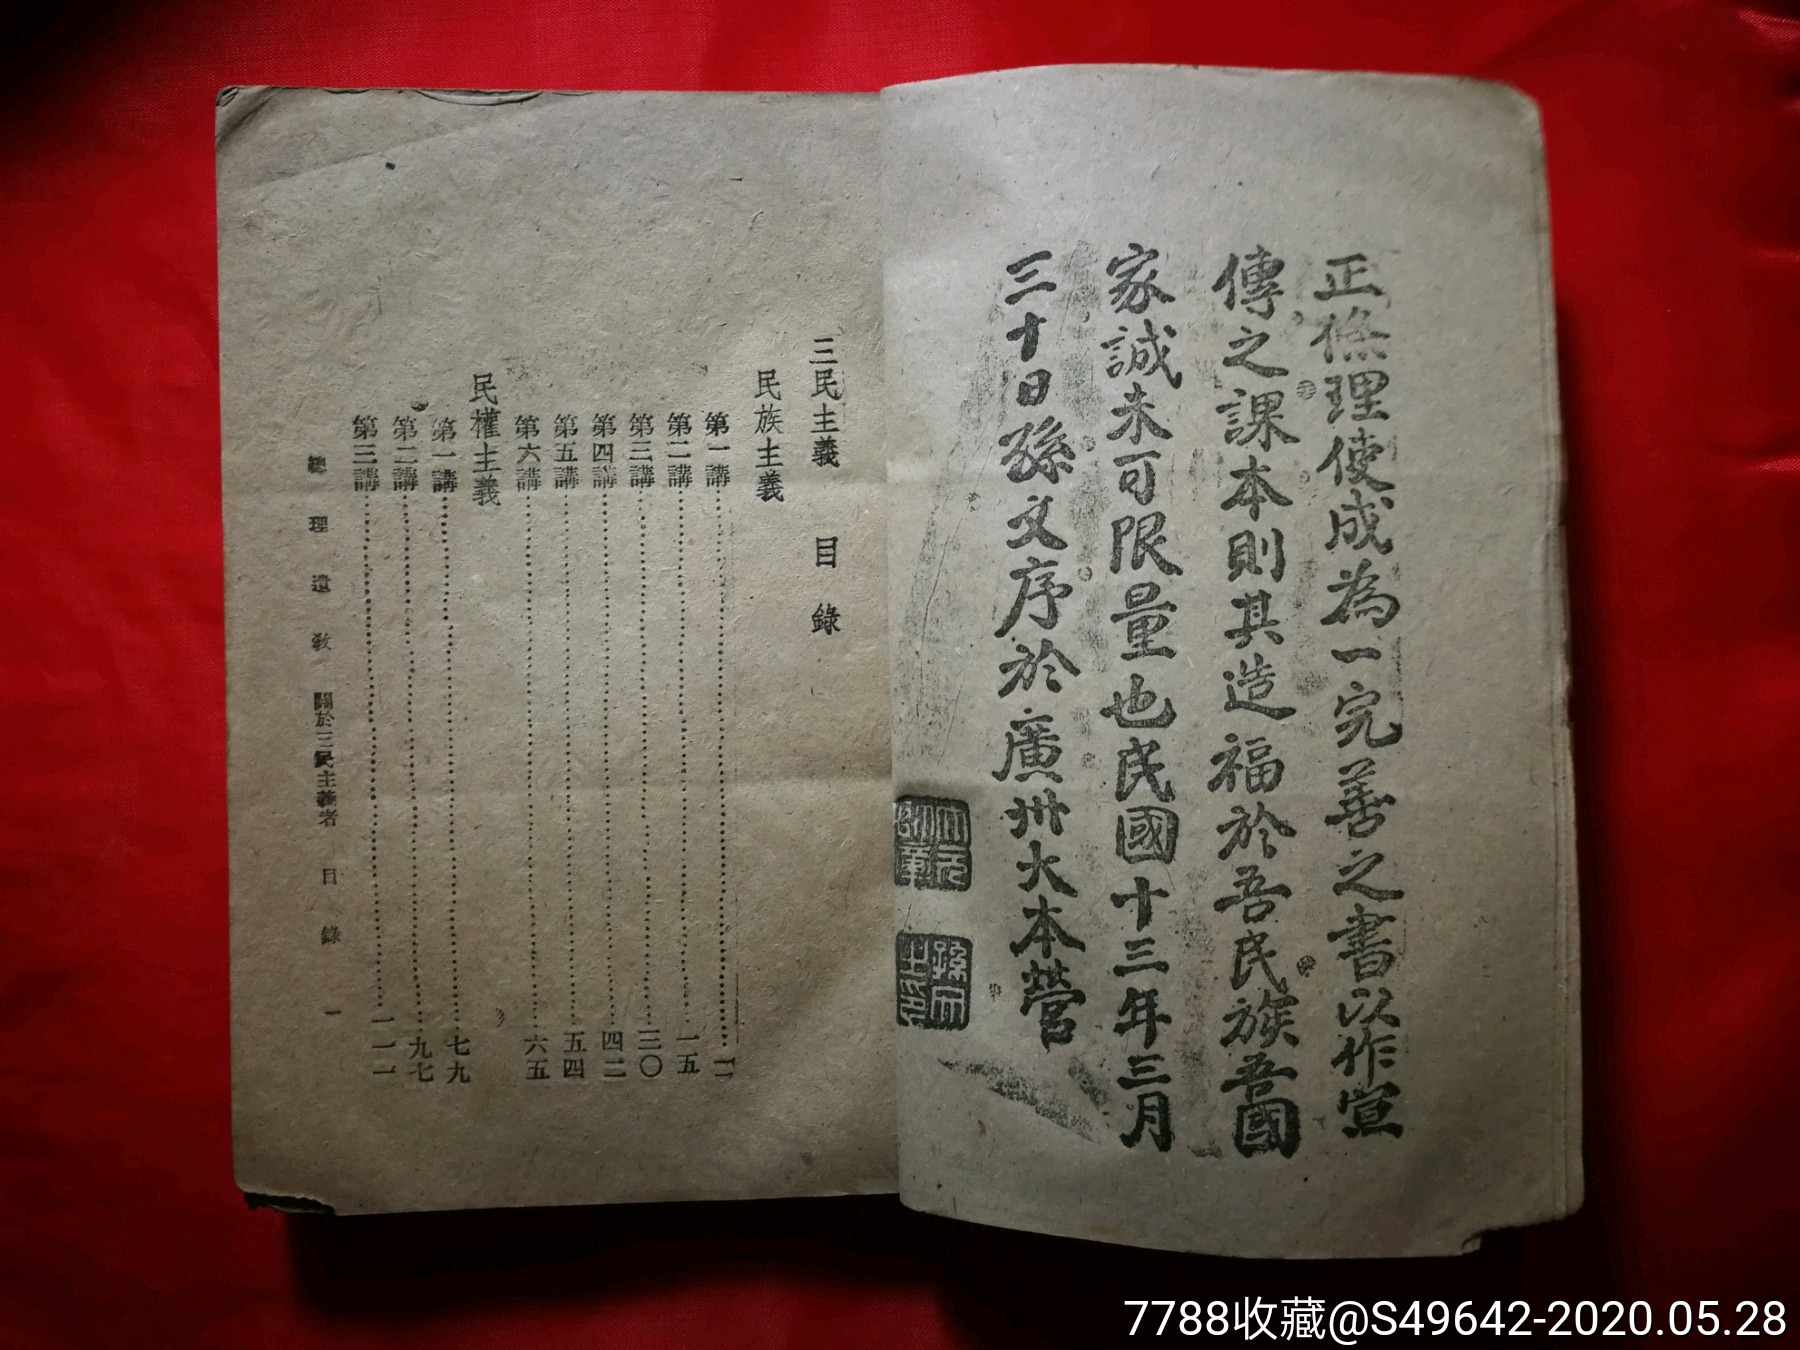 正條理使成為一完善之書以作宣
傳之課本則其造福於吾民族吾國
家誠未可限量也民國十三年三月
三十日孫文序於廣州大本營
大元帥章
孫文之印
三民主義 目錄
民族主義
第一講
第二講 一五
第三講 三〇
第四講 四二
第五講 五四
第六講 六五
民權主義
第一講 七九
第二講 九七
第三講 一一一
總理遺教 關於三民主義者 目錄 一
7788收藏@S49642-2020.05.28